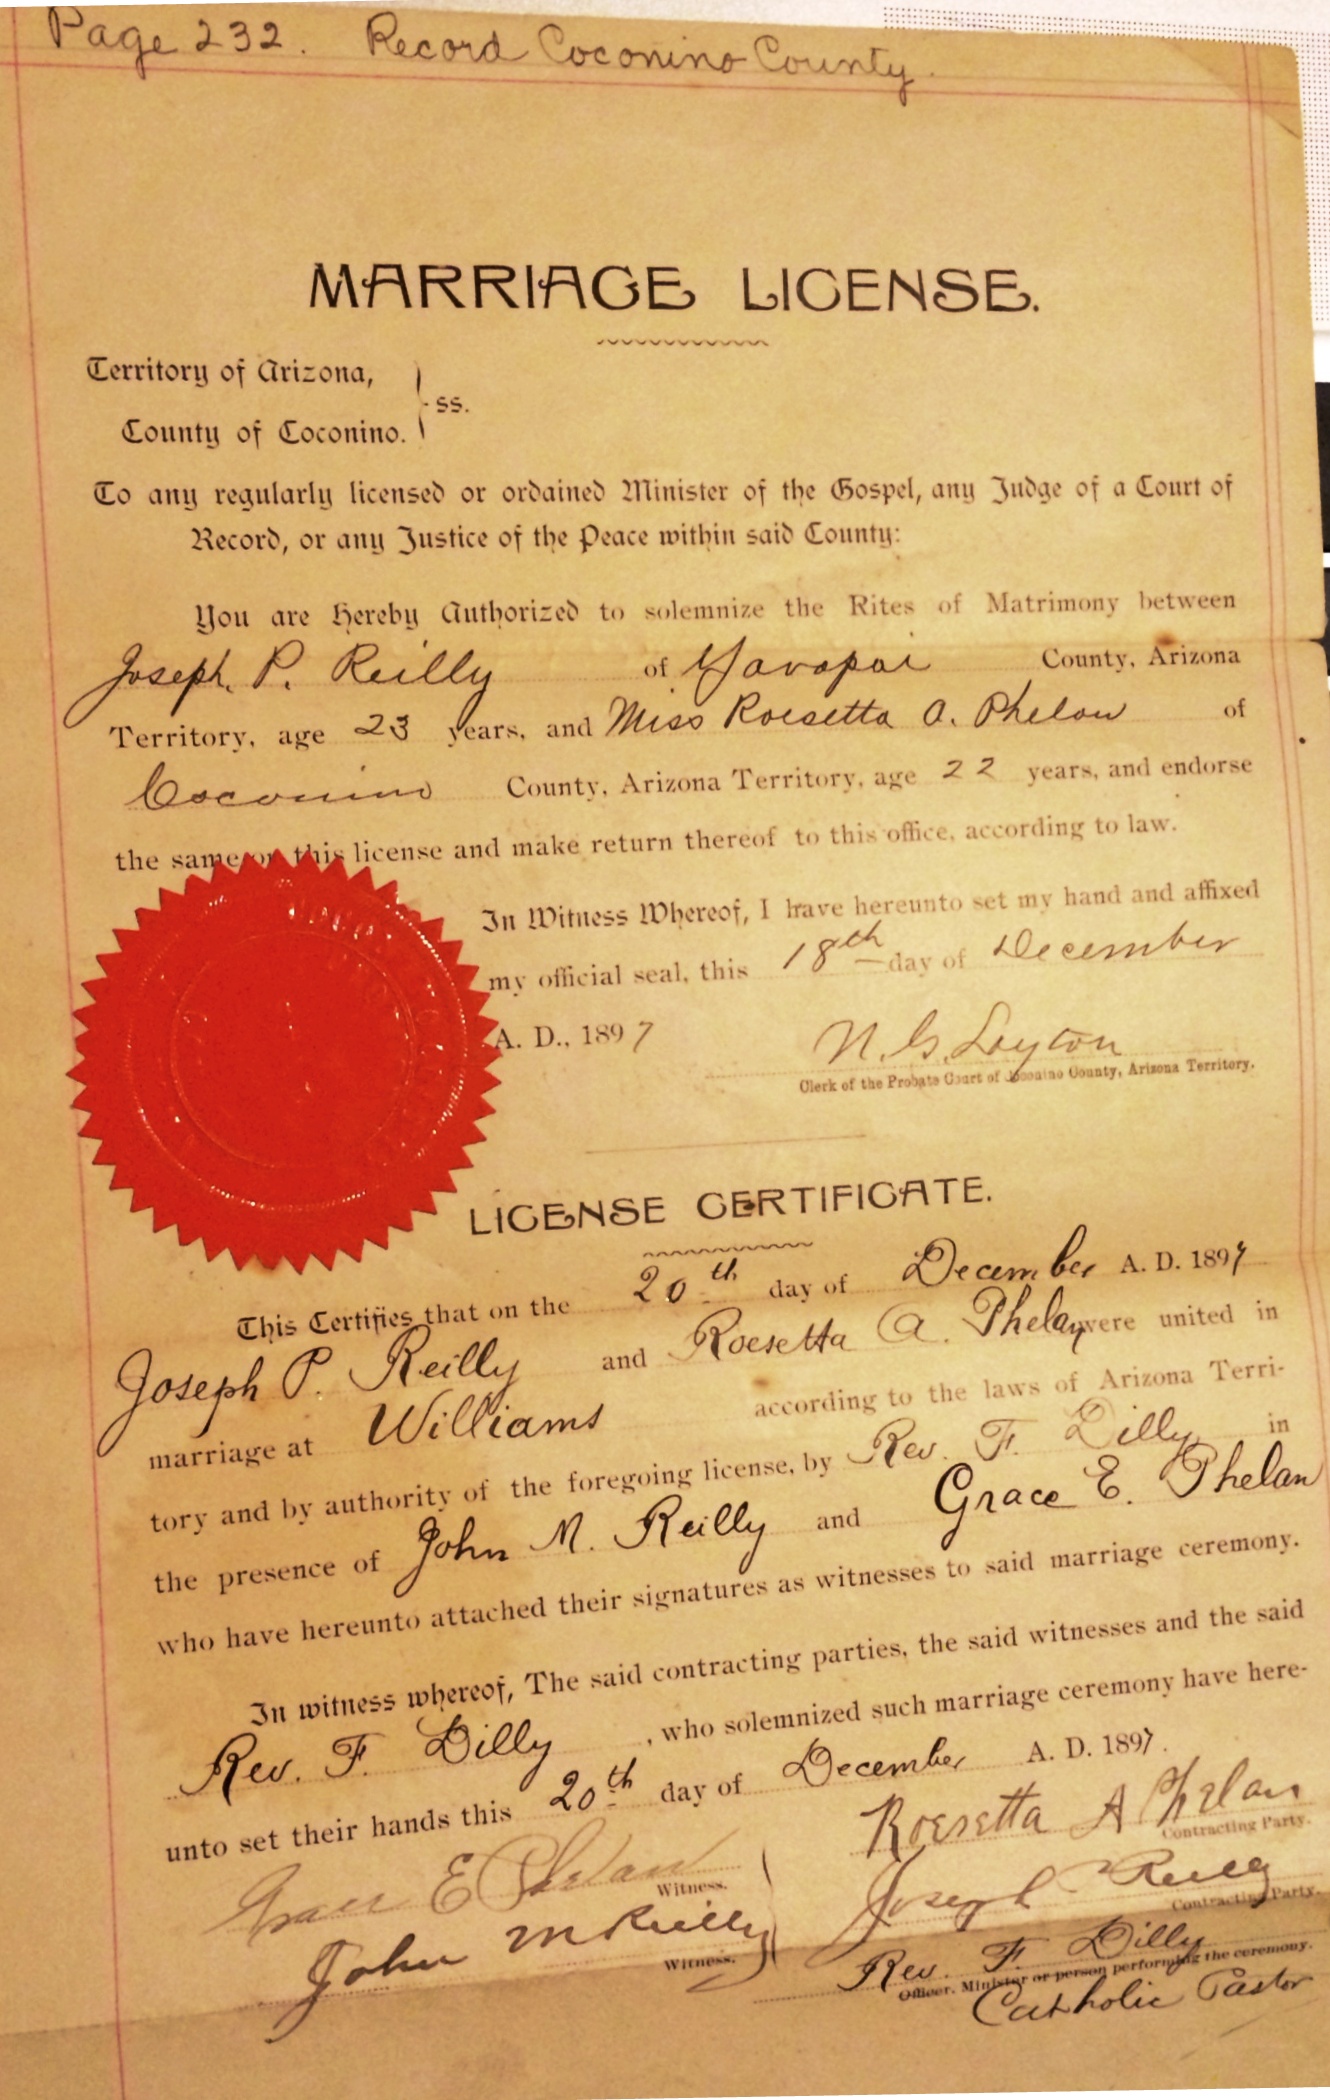 Page 232. Record Coconino County.
MARRIAGE LICENSE.
Territory of Arizona,
ss.
County of Coconino.
To any regularly licensed or ordained Minister of the Gospel, any Judge of a Court of
Record, or any Justice of the Peace within said County:
You are Hereby Authorized to solemnize the Rites of Matrimony between
Joseph P. Reilly of Yavapai County, Arizona
Territory, age 23 years, and Miss Roesetta A. Phelan of
Coconino County, Arizona Territory, age 22 years, and endorse
the same on this license and make return thereof to this office, according to law.
In Witness Whereof, I have hereunto set my hand and affixed
my official seal, this 18th day of December
A. D., 1897
N. G. Layton
Clerk of the Probate Court of Coconino County, Arizona Territory.
LICENSE CERTIFICATE.
This Certifies that on the 20th day of December A. D. 1897
Joseph P. Reilly and Roesetta A. Phelan were united in
marriage at Williams according to the laws of Arizona Terri-
tory and by authority of the foregoing license, by Rev. F. Dilly in
the presence of John M. Reilly and Grace E. Phelan
who have hereunto attached their signatures as witnesses to said marriage ceremony.
In witness whereof, The said contracting parties, the said witnesses and the said
Rev. F. Dilly , who solemnized such marriage ceremony have here-
unto set their hands this 20th day of December A. D. 1897.
Roesetta A Phelan
Contracting Party.
Grace E Phelan
Witness.
Joseph P Reilly
Contracting Party.
John M Reilly
Witness.
Rev. F. Dilly
Officer, Minister or person performing the ceremony.
Catholic Pastor